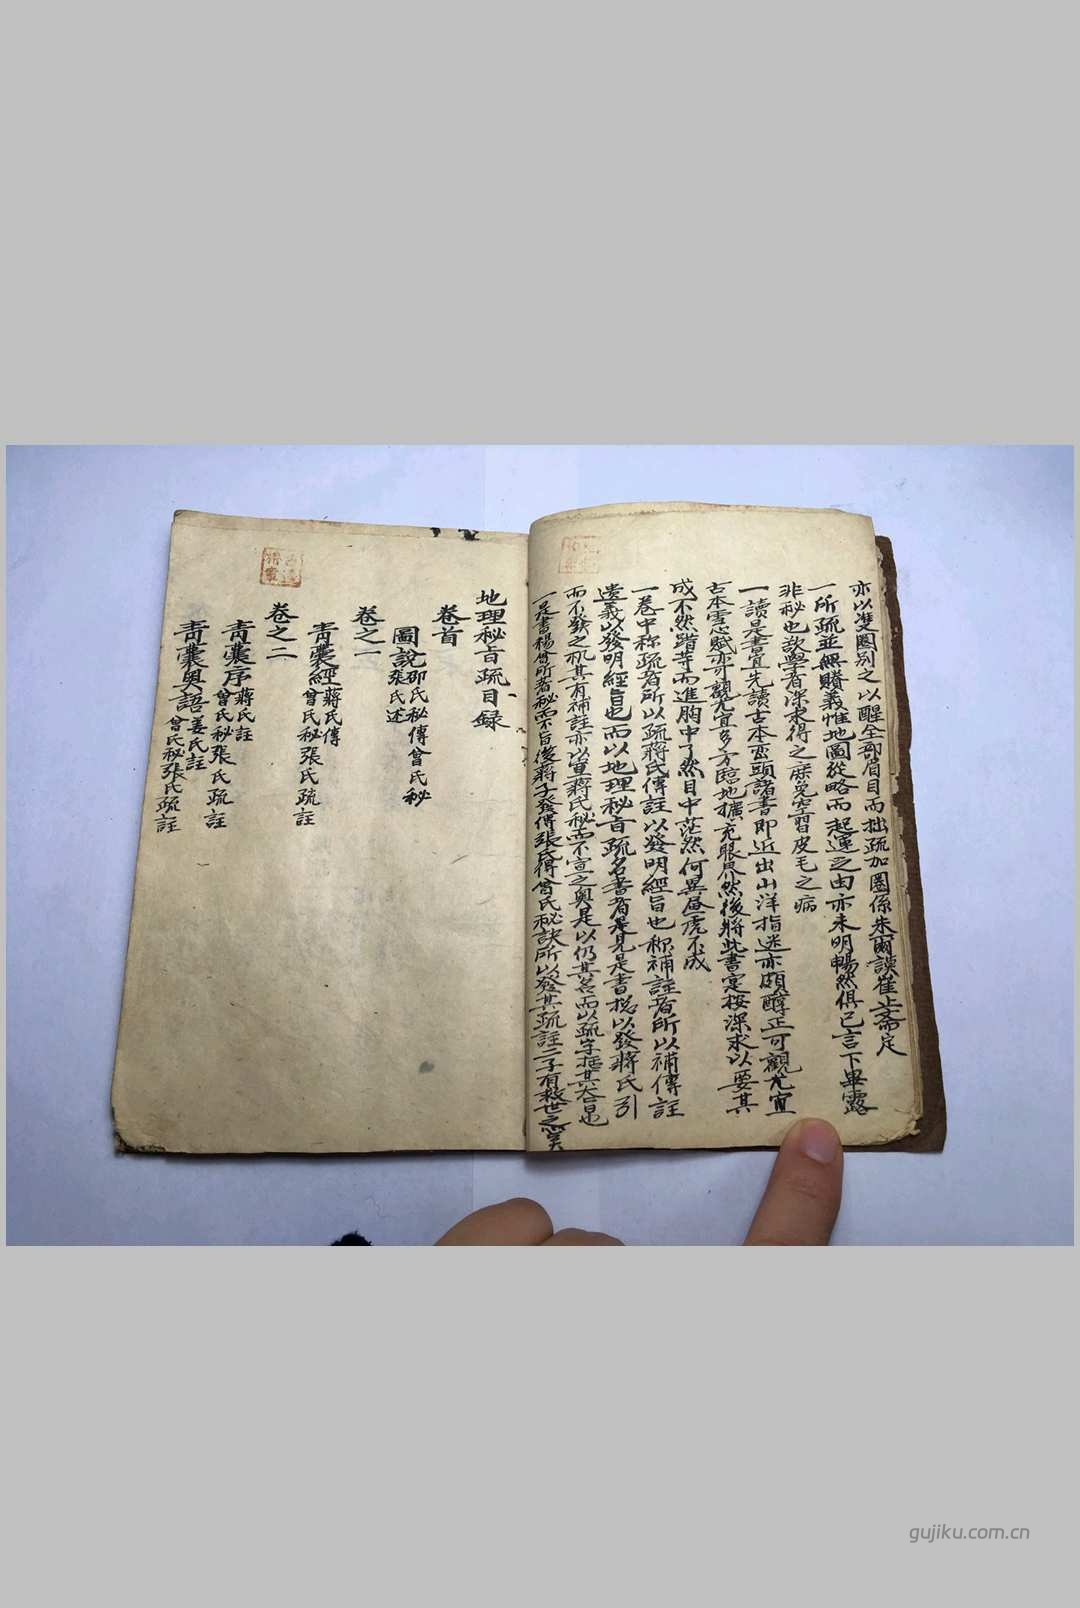 亦以雙圈別之以醒全部眉目而拙疏加圈係朱爾謨崔止齋定
一所疏並無賸義惟地圖從略而起運之由亦未明暢然俱已言下畢露
非秘也欲學者深求得之庶免空習皮毛之病
一讀是書宜先讀古本巒頭諸書即近出山洋指迷亦頗醇正可觀尤宜
古本雪心賦亦可觀尤宜多方臨地擴充眼界然後將此書定按深求以要其
成不然躐等而進胸中了然目中茫然何異畫虎不成
一卷中称疏者所以疏蔣氏傳註以發明經旨也称補註者所以補傳註
遺義以發明經旨也而以地理秘旨疏名書者是見是書摠以發蔣氏引
而不發之机其有補註亦以宣蔣氏秘而不宣之奧是以仍其名而以疏字括其大旨也
一是書楊曾所著秘而不旨後蔣子發傳張氏得曾氏秘訣所以發其疏註二子有救世之心矣
地理秘旨疏目錄
卷首
圖說邵氏秘傳曾氏秘
張氏述
卷之一
青囊經蔣氏傳
曾氏秘張氏疏註
卷之二
青囊序蔣氏註
曾氏秘張氏疏註
青囊奧語姜氏註
曾氏秘張氏疏註
gujiku.com.cn